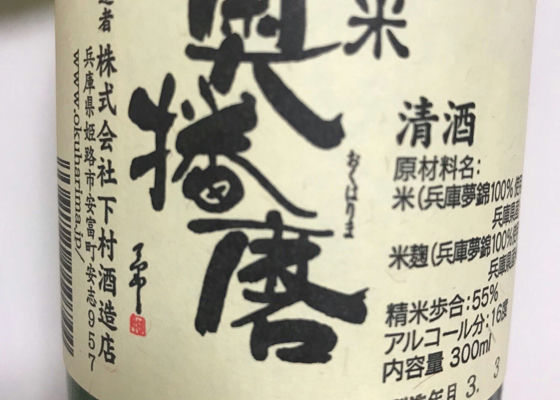 米
奥播磨
おくはりま
清酒
原材料名:
米(兵庫夢錦100%使
兵庫県産
米麹(兵庫夢錦100%使
兵庫県産
精米歩合:55%
アルコール分:16度
内容量 300ml
製造年月 3. 3
造者
株式会社下村酒造店
兵庫県姫路市安富町安志957
www.okuharima.jp/